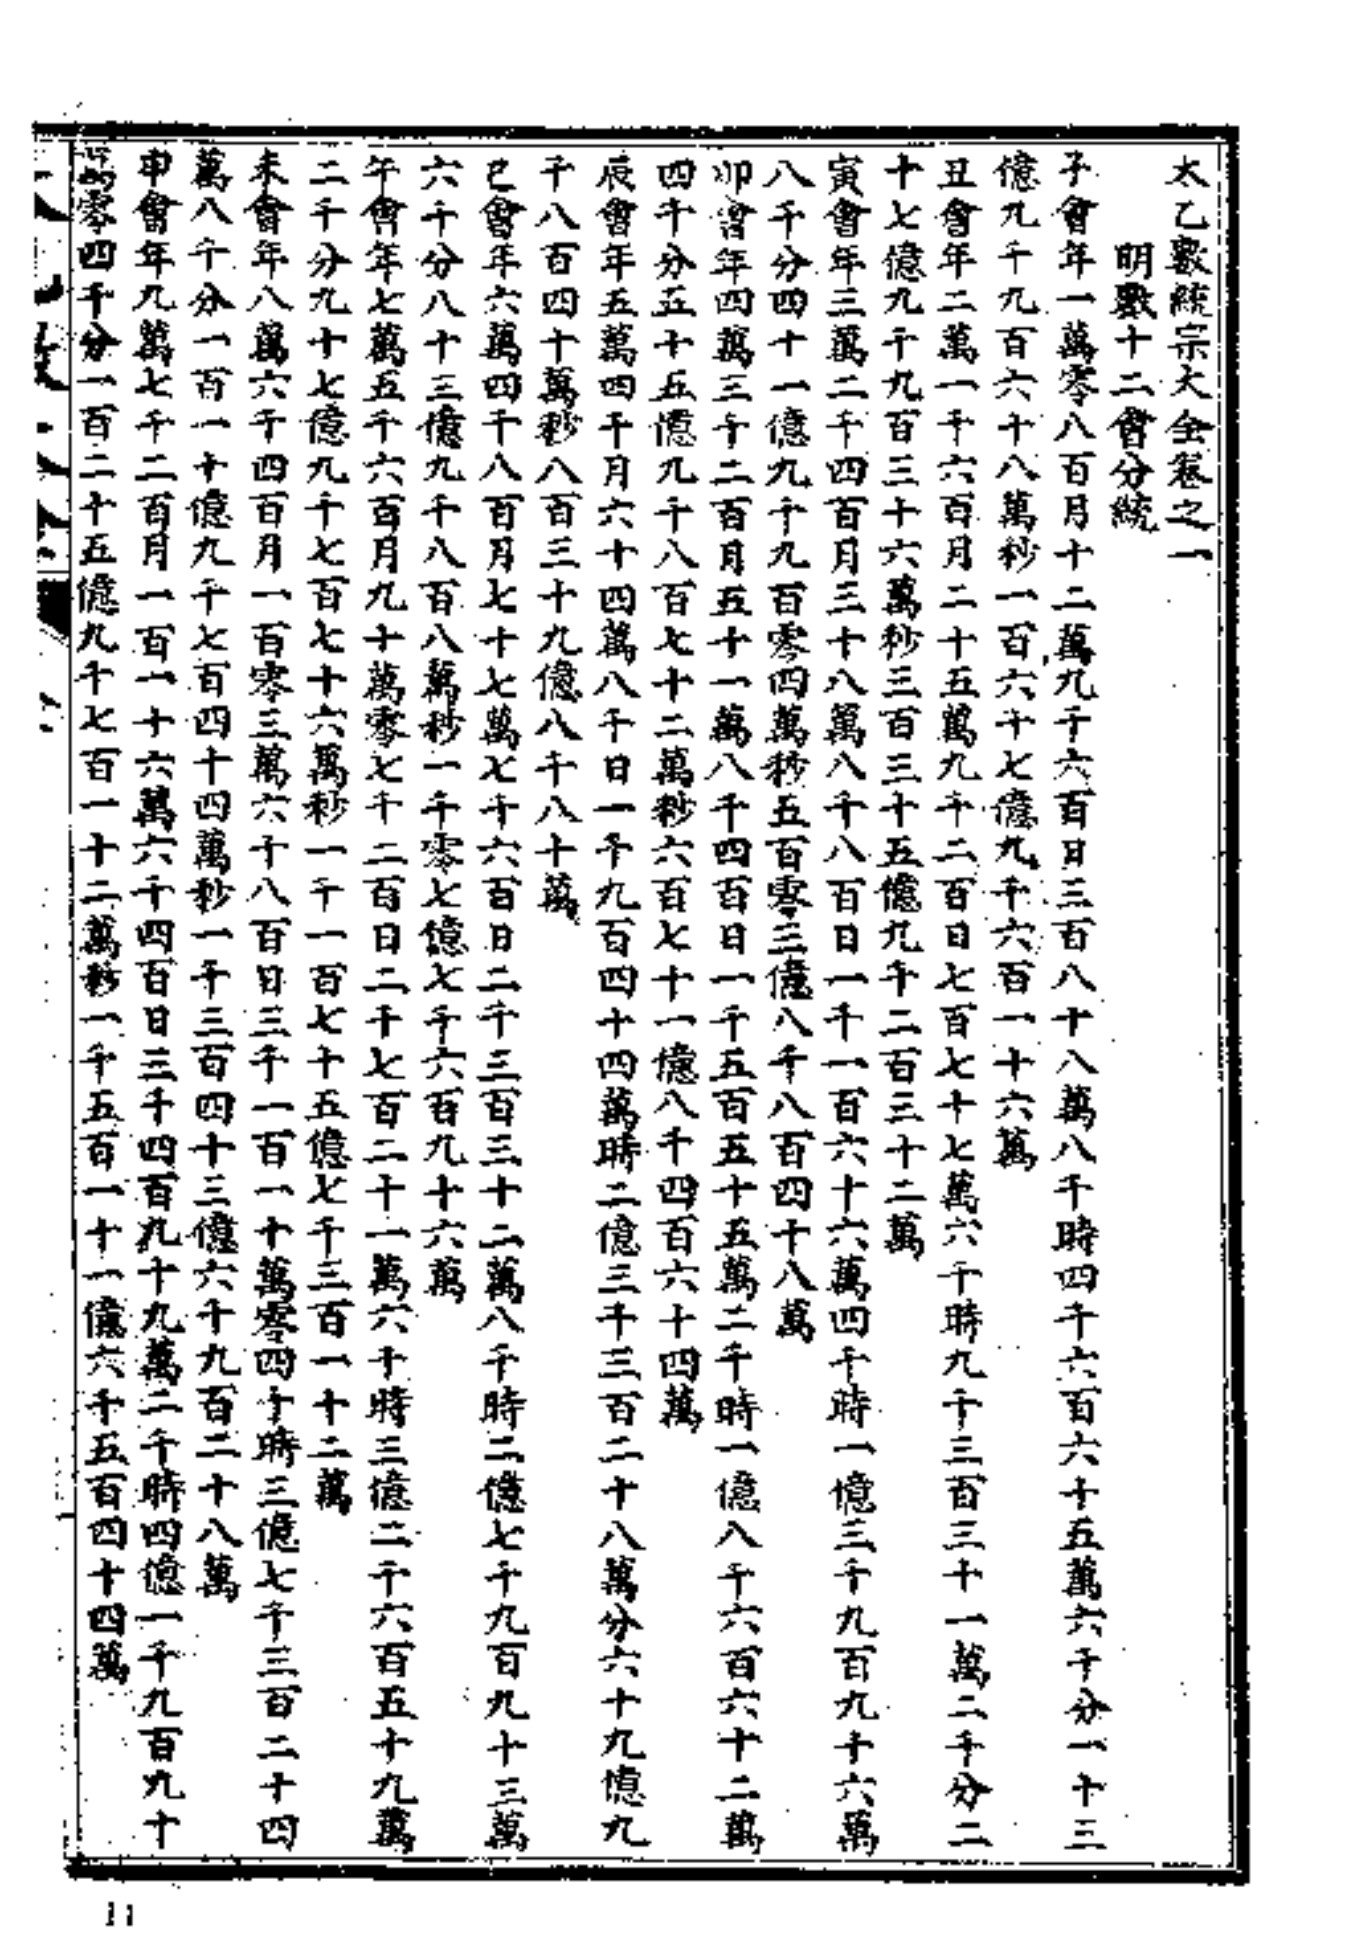 太乙數統宗大全卷之一
明數十二會分統
子會年一萬零八百月十二萬九千六百日三百八十八萬八千時四千六百六十五萬六千分一十三
億九千九百六十八萬秒一百六十七億九千六百一十六萬
丑會年二萬一千六百月二十五萬九千二百日七百七十七萬六千時九千三百三十一萬二千分二
十七億九千九百三十六萬秒三百三十五億九千二百三十二萬
寅會年三萬二千四百月三十八萬八千八百日一千一百六十六萬四千時一億三千九百九十六萬
八千分四十一億九千九百零四萬秒五百零三億八千八百四十八萬
卯會年四萬三千二百月五十一萬八千四百日一千五百五十五萬二千時一億八千六百六十二萬
四千分五十五億九千八百七十二萬秒六百七十一億八千四百六十四萬
辰會年五萬四千月六十四萬八千日一千九百四十四萬時二億三千三百二十八萬分六十九億九
千八百四十萬秒八百三十九億八千八十萬
巳會年六萬四千八百月七十七萬七千六百日二千三百三十二萬八千時二億七千九百九十三萬
六千分八十三億九千八百八萬秒一千零七億七千六百九十六萬
午會年七萬五千六百月九十萬零七千二百日二千七百二十一萬六千時三億二千六百五十九萬
二千分九十七億九千七百七十六萬秒一千一百七十五億七千三百一十二萬
未會年八萬六千四百月一百零三萬六千八百日三千一百一十萬零四千時三億七千三百二十四
萬八千分一百一十億九千七百四十四萬秒一千三百四十三億六千九百二十八萬
申會年九萬七千二百月一百一十六萬六千四百日三千四百九十九萬二千時四億一千九百九十
萬零四千分一百二十五億九千七百一十二萬秒一千五百一十一億六千五百四十四萬
11